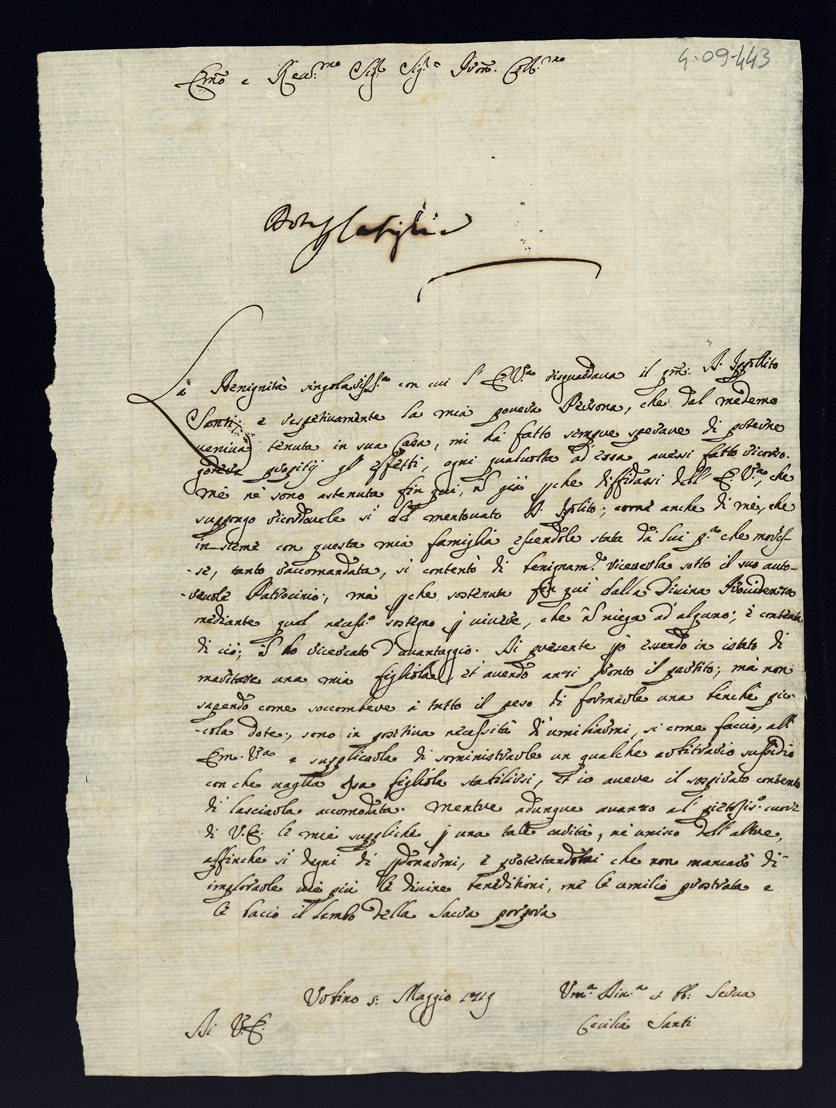 4-09-443
Em̃o e Reu.mo Sig.r Sig.r Pron. Coll.mo
La Benignità singolariss.ma con cui l' E.V.ra risguardaua il qm̃. Sr. Ippolito
Santi, e respetiuamente la mia pouera Persona, che dal medemo
ueniua tenuta in sua Casa, mi hà fatto sempre sperare di poterne
godere propitij gl' effetti, ogni qualuolta ad essa auessi fatto ricorso.
Mè nè sono astenuta fin qui, nō già p̱che diffidassi dell' E.V.ra, che
suppongo ricordeuole sì del mentouato Sr. Ipolito; come anche di mè, che
insieme con questa mia famiglia essendole stata dà lui p.a che moris-
-se, tanto raccomandata, si contentò di benignam.te riceuerla sotto il suo auto-
-reuole Patrocinio; mà p̱che sostenuta fin qui dalla Diuina Prouidenza
mediante quel necess.o sostegno p̱ uiuere, che nō niega ad alcuno; e contenta
di ciò; nō hò ricercato d'auantaggio. Di presente p̱ò essendo in istato di
maritare una mia figliola, et auendo anzi pronto il partito; mà non
sapendo come soccombere à tutto il peso di formarle una benchè pic-
-cola dote; sono in positiua necessità di umiliarmi, si come faccio, all'
Em. V.ra e supplicarla di somministrarle un qualche arbitrario sussidio
con che uaglia essa figliola stabilirsi, et io auere il sospirato contento
di lasciarla accomodata. Mentre adunque auanzo al pietosis.o cuore
di V.E. le mie suppliche p̱ una tale carità, nè unisco dell' altre,
affinche si degni di p̱donarmi, e protestandomi che non mancarò d'
implorarle uie più le diuine benedizioni, me le umilio prostrata e
le bacio il lembo della Sacra porpora
Urbino 5: Maggio 1719
Di V.E.
Um.a Diu.a et Obb. Serua
Cecilia Santi